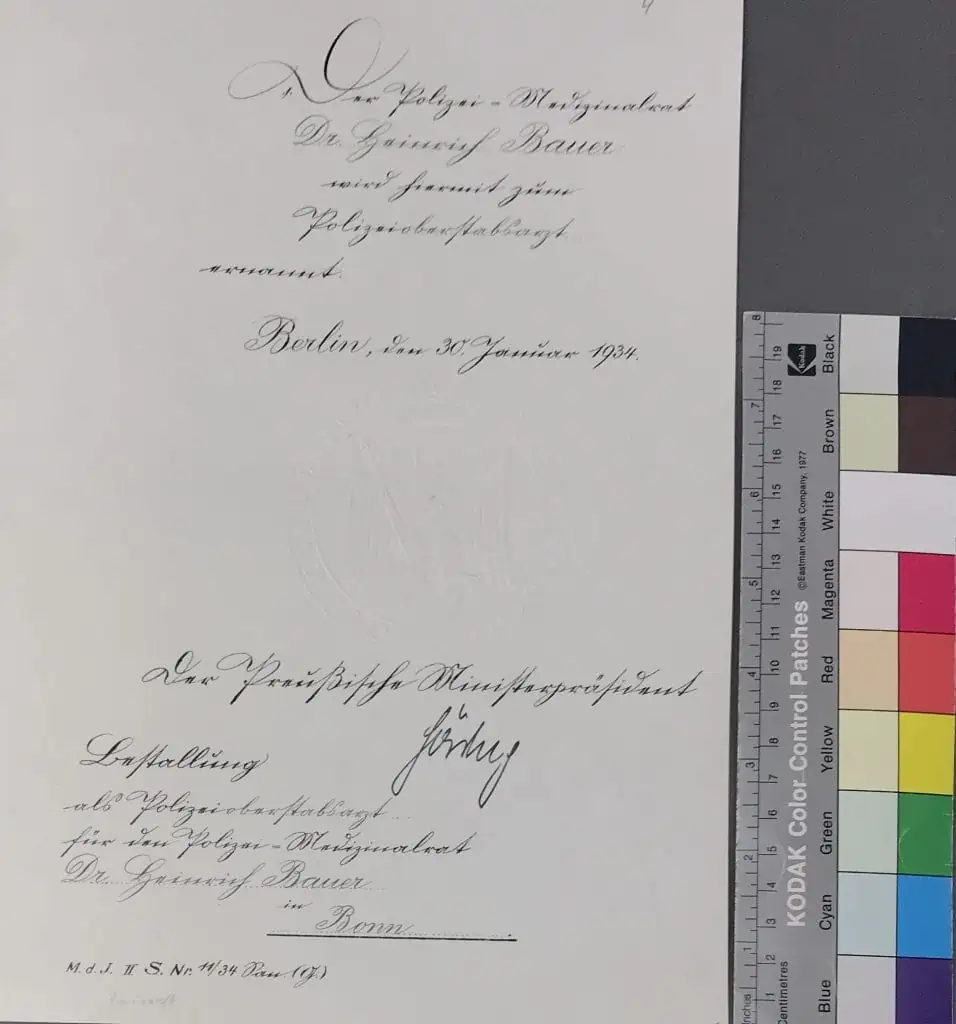 4
Der Polizei-Medizinalrat
Dr. Heinrich Bauer
wird hiermit zum
Polizeioberstabsarzt
ernannt.
Berlin, den 30. Januar 1934.
Der Preußische Ministerpräsident
Göring
Bestallung
als Polizeioberstabsarzt
für den Polizei-Medizinalrat
Dr. Heinrich Bauer
in
Bonn
M. d. J. II S. Nr. 11/34 San. (G.)
KODAK Color Control Patches
©Eastman Kodak Company, 1977
Kodak
Black
Brown
White
Magenta
Red
Yellow
Green
Cyan
Blue
8
7
6
5
4
3
2
1
19
18
17
16
15
14
13
12
11
10
9
8
7
6
5
4
3
2
1
Centimetres